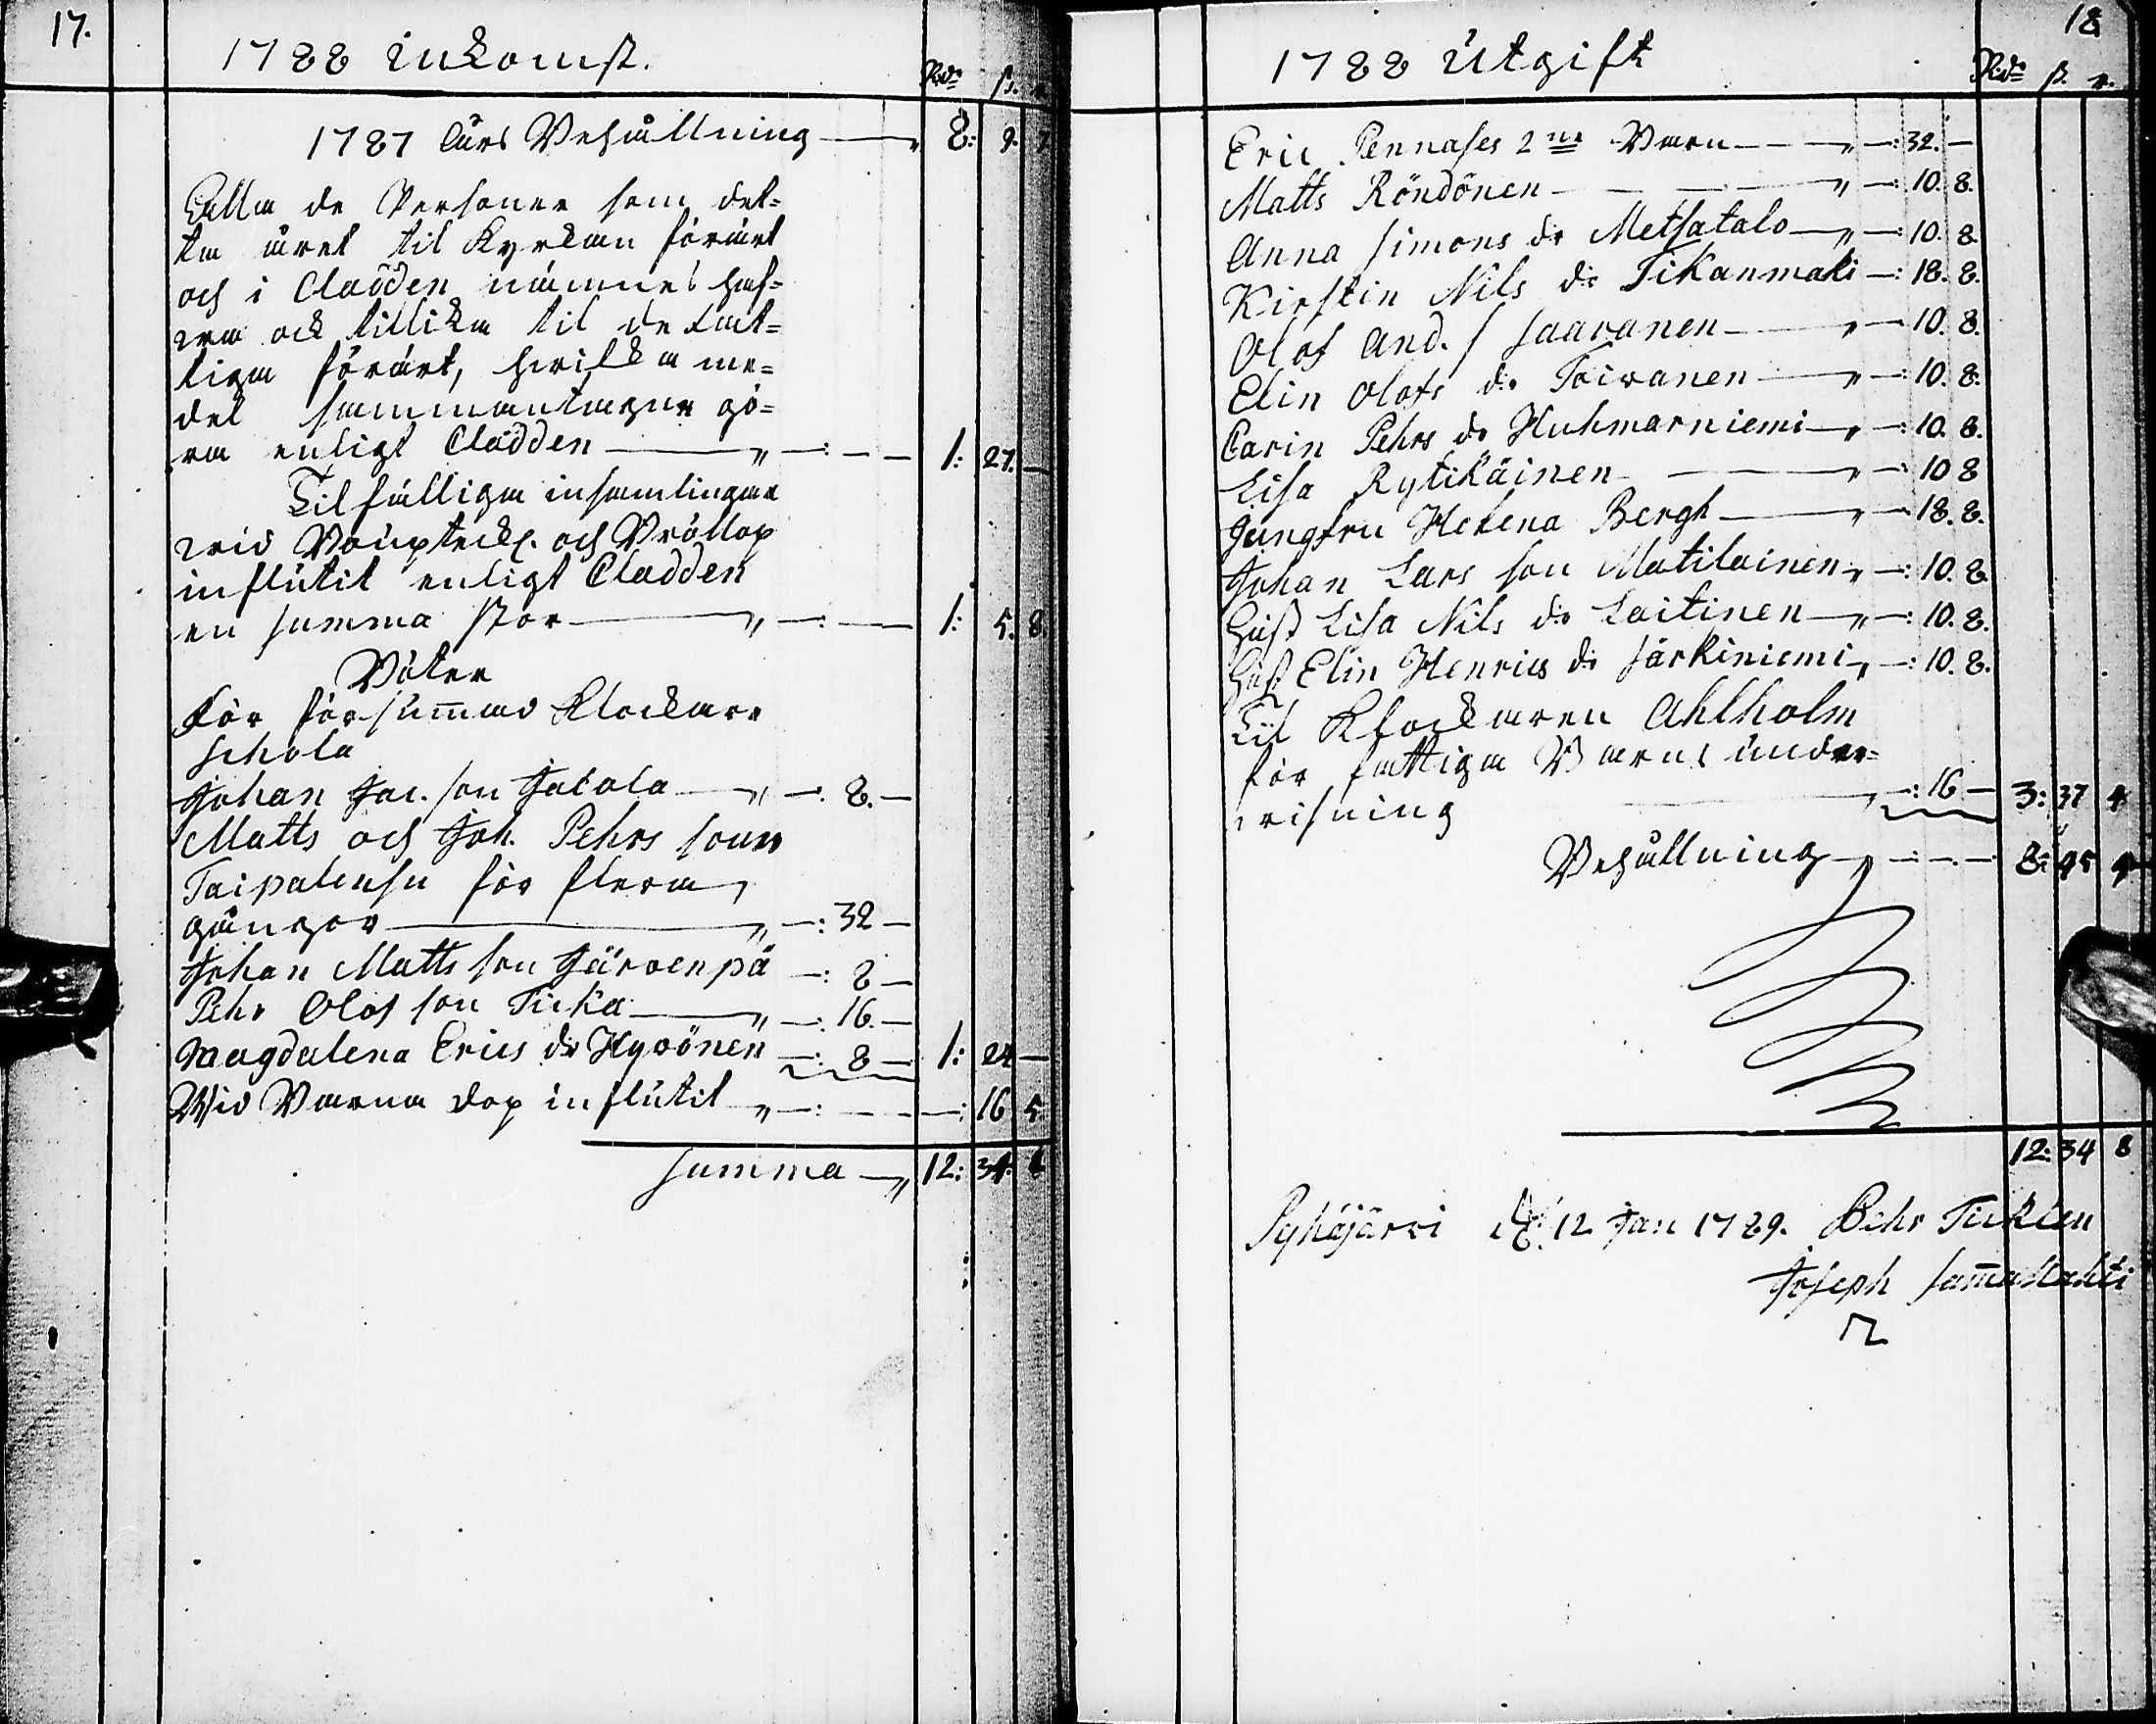 17.
1788 Inkomst.
Rd: ß. r.
1787 Års Behållning 8: 9. 7
Alla de Personer som det-
ta året til Kyrkan förärt
och i Cladden nämnes haf-
wa ock tillika til de Fat-
tiga förärt, hwilka me-
del sammantagne gö-
ra enligt Cladden 1: 27. —
Tilfälliga insamlingar
wid och Bröllop
influtit enligt Cladden
en summa stor 1: 5. 8.
Böter
För försummad Klockare
schola
Johan Jac. son Jacola —: 8. —
Matts och Joh. Pehrs söner
Taipalensu för flera
gångor —: 32 —
Johan Matts son Järvenpä —: 8 —
Pehr Olof son Ticka —: 16. —
Magdalena Erics dr Hyvönen —: 8 — 1: 24 —
Wid Barna dop influtit —: 16 5.
Summa 12: 34. 8
18
1788 Utgift
Rd: ß. r.
Eric Pennases 2ne Barn —: 32. —
Matts Röndönen —: 10. 8.
Anna Simons dr Metsatalo —: 10. 8.
Kirstin Nils dr Tikanmaki —: 18. 8.
Olof And. s Saaranen — 10. 8.
Elin Olofs dr Toivanen —: 10. 8.
Carin Pehrs dr Huhmarniemi —: 10. 8.
Lisa Rytikäinen —: 10 8
Jungfru Helena Bergh — 18. 8.
Johan Lars son Matilainen —: 10. 8.
Hust Lisa Nils dr Laitinen —: 10. 8.
Hust Elin Henrics dr Särkiniemi —: 10. 8.
Til Klockaren Ahlholm
för fattiga Barns under-
wisning —: 16 — 3: 37 4
Behållning 8: 45 4
12: 34 8
Pyhäjärwi d. 12 Jan: 1789. Pehr Ticklen
Joseph